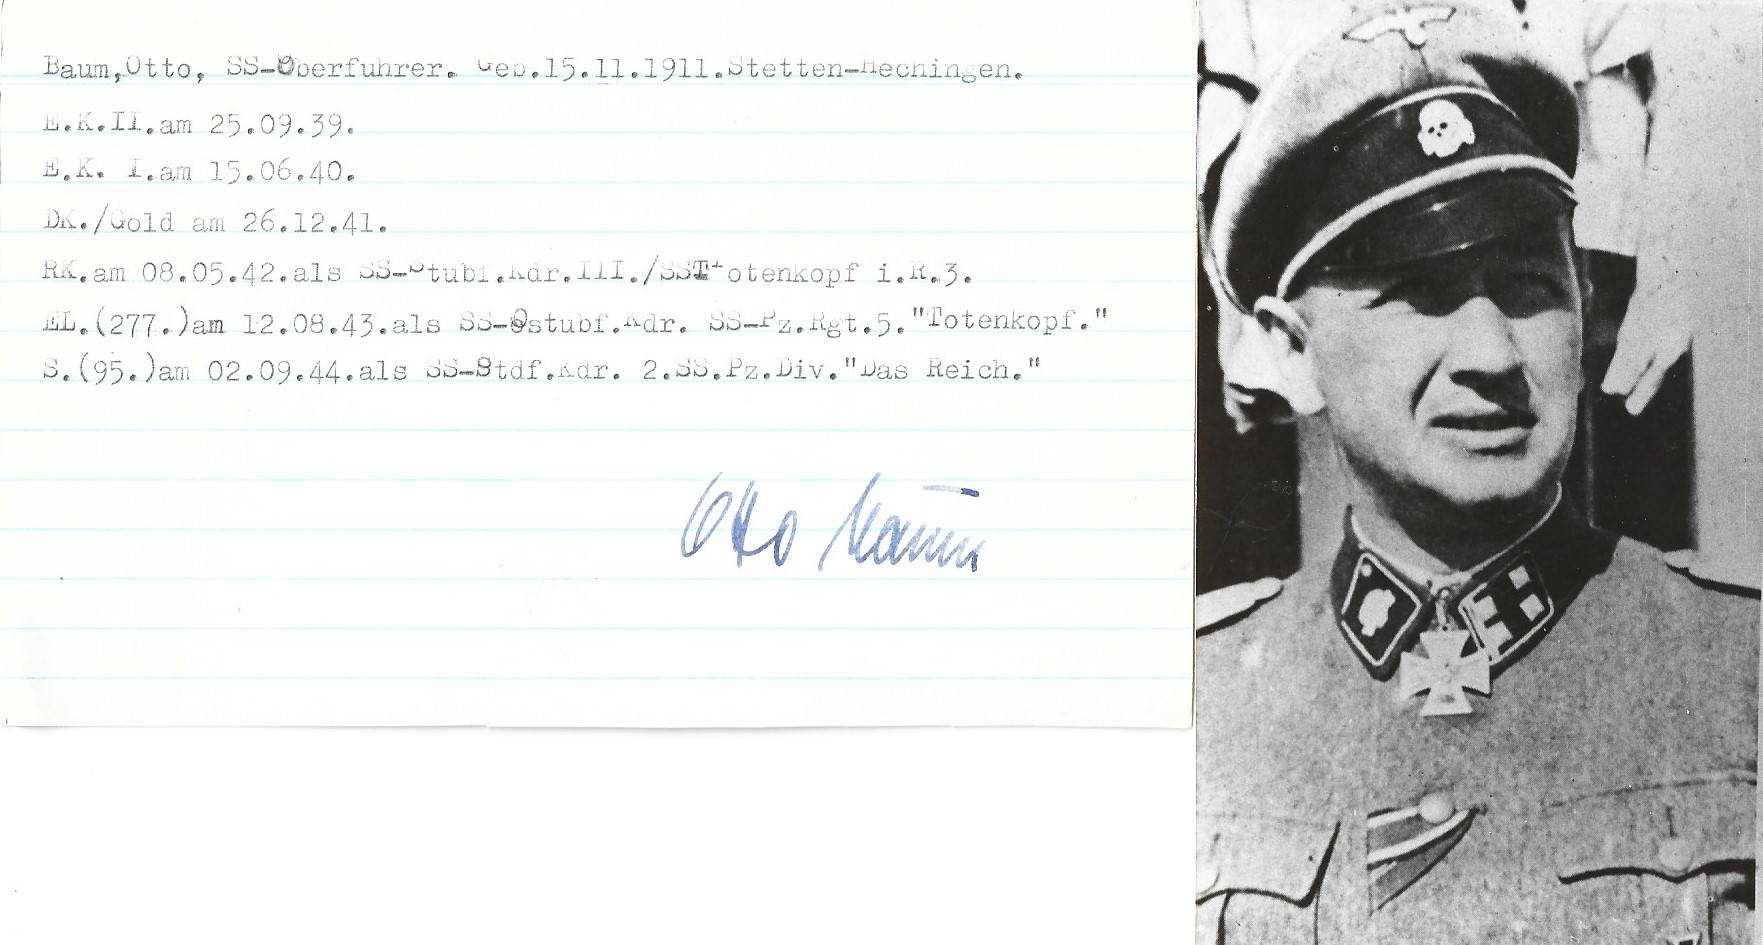 Baum,Otto, SS-Oberfuhrer. Geb.15.11.1911.Stetten-Hechingen.
E.K.II.am 25.09.39.
E.K. I.am 15.06.40.
DK./Gold am 26.12.41.
RK.am 08.05.42.als SS-Stubf.Kdr.III./SST-otenkopf i.R.3.
EL.(277.)am 12.08.43.als SS-Ostubf.Kdr. SS-Pz.Rgt.5."Totenkopf."
S.(95.)am 02.09.44.als SS-Stdf.Kdr. 2.SS.Pz.Div."Das Reich."
Otto Baum